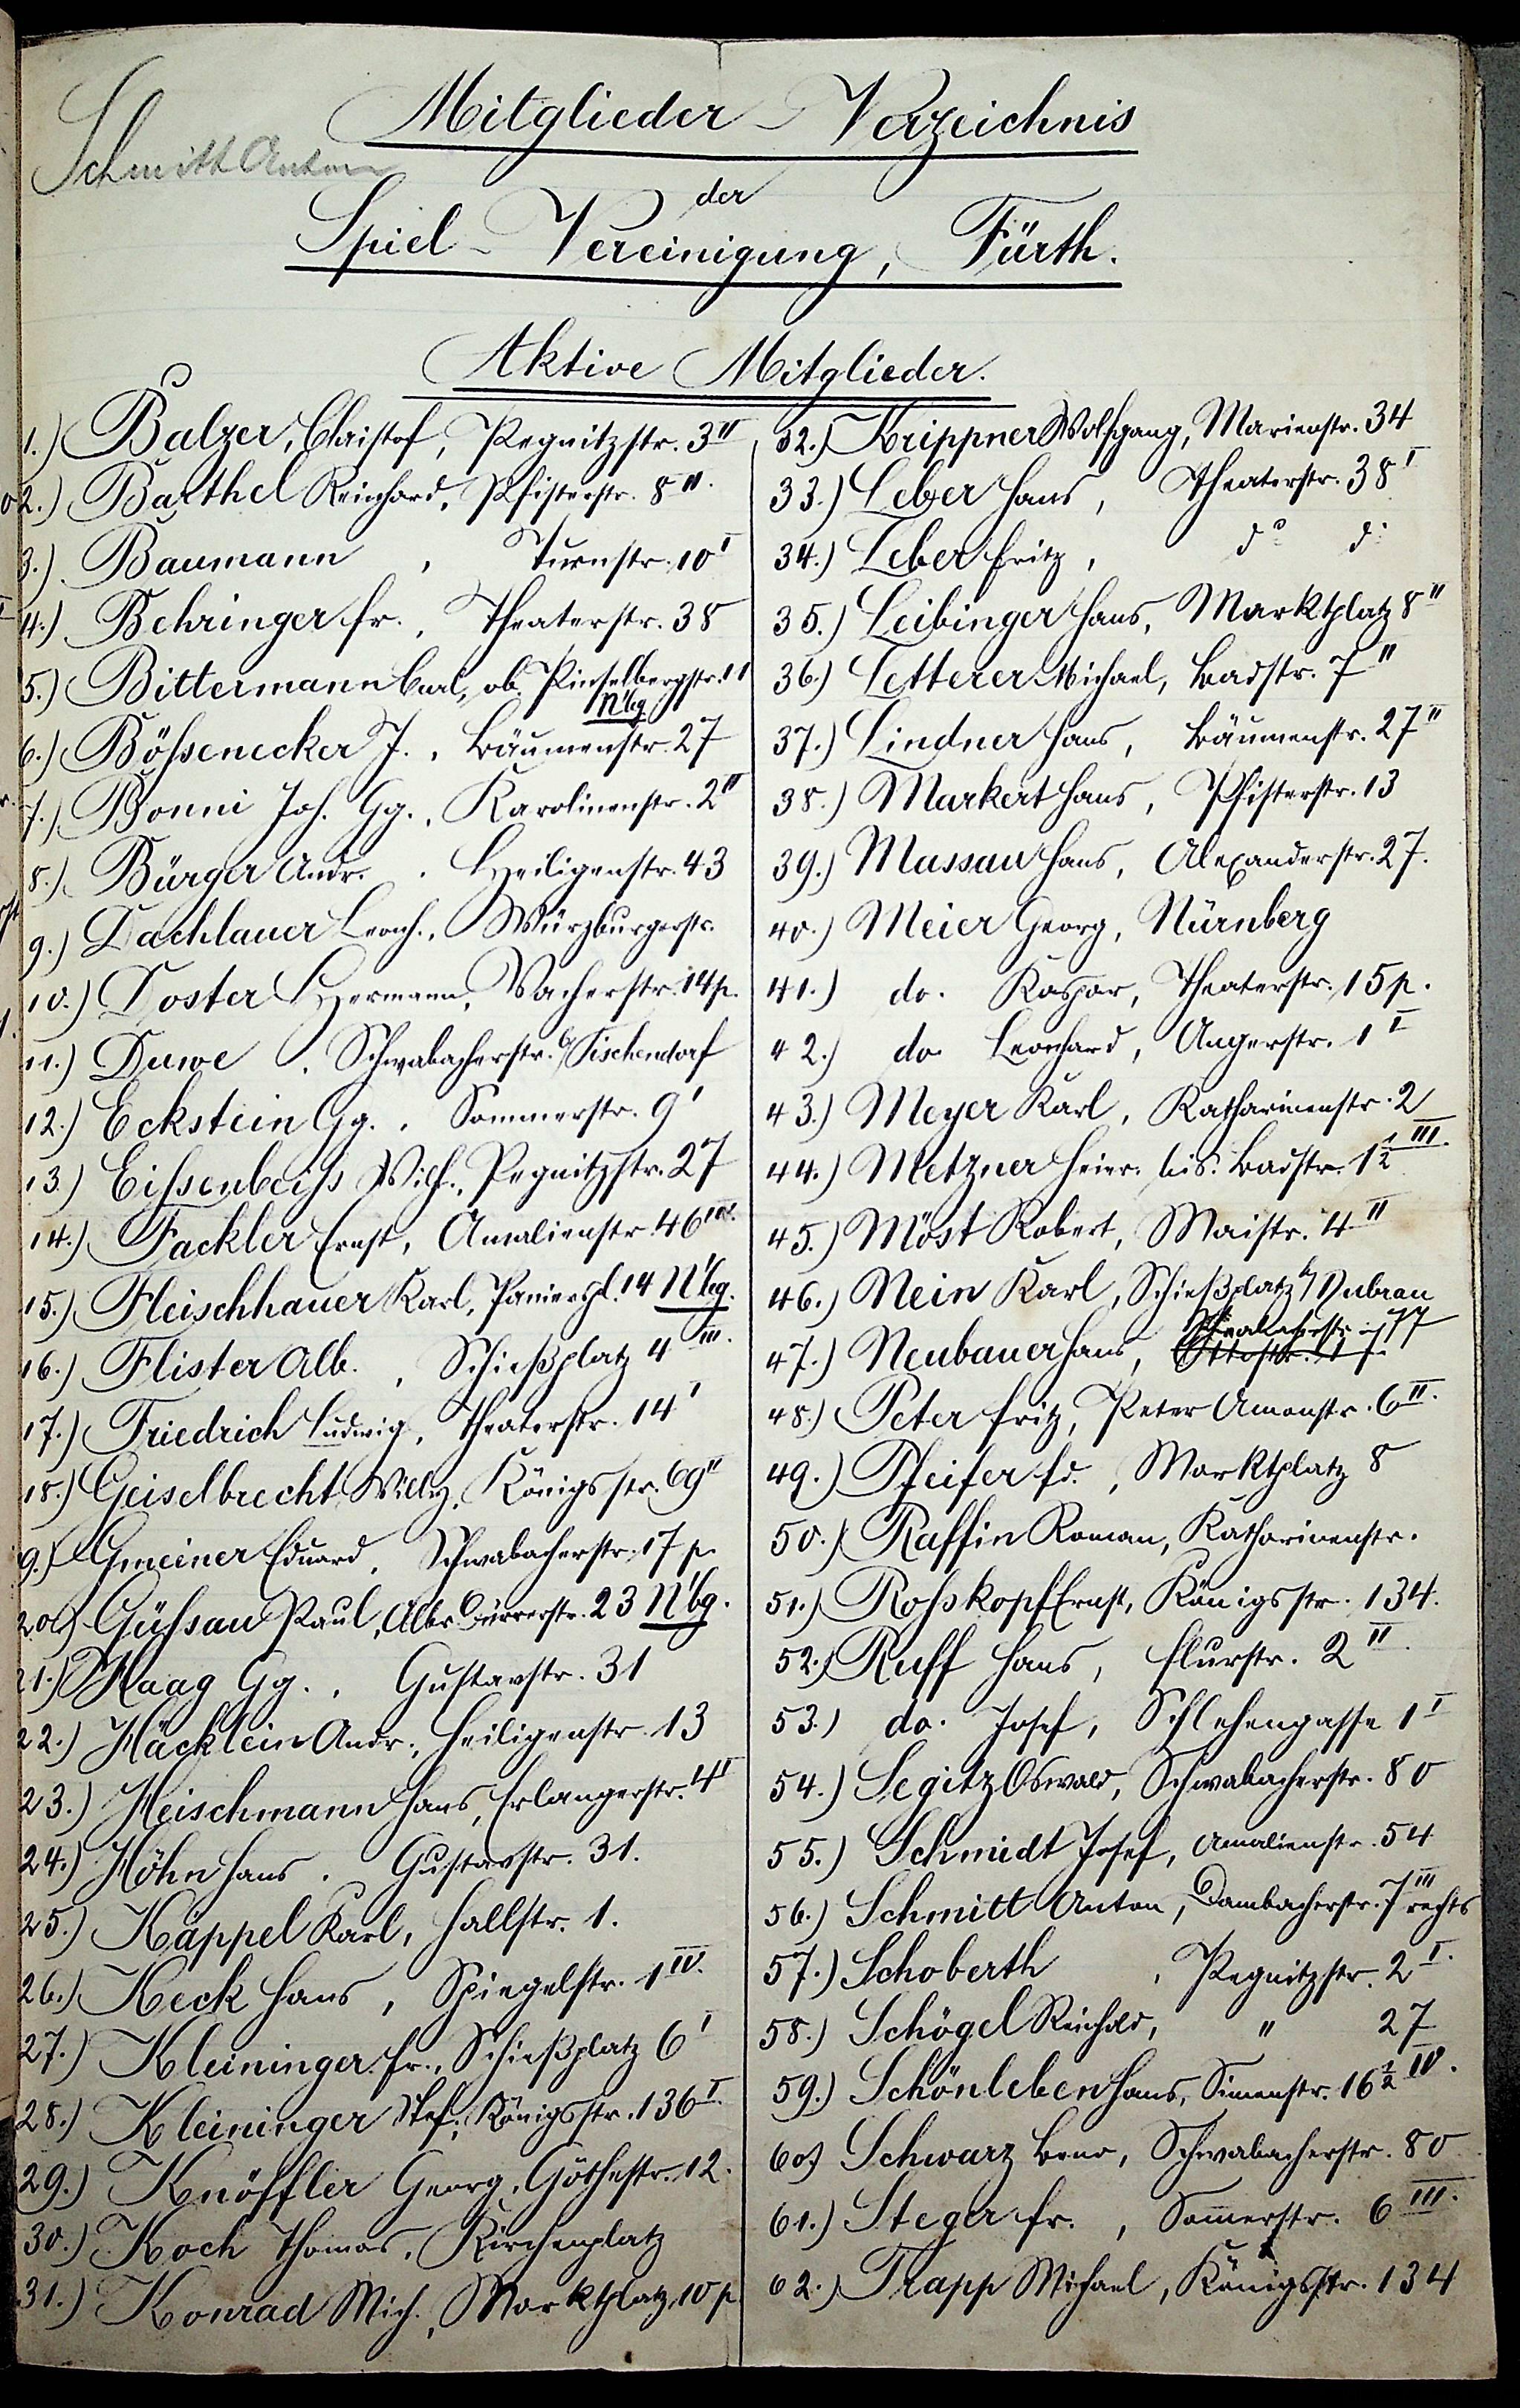 Schmitt Anton
Mitglieder-Verzeichnis
der
Spiel-Vereinigung, Fürth.
Aktive Mitglieder.
1.) Balzer, Christof, Pegnitzstr. 3 II
2.) Barthel Reinhard, Pfisterstr. 8 II.
3.) Baumann , Turnstr. 10 I
4.) Behringer Fr., Theaterstr. 38
5.) Bittermann Carl, ob. Pinselbergstr. 11
N'bg
6.) Bößenecker J., Bäumenstr. 27
7.) Bonni Joh. Gg., Karolinenstr. 2 II
8.) Bürger Andr., Heiligenstr. 43
9.) Dachlauer Leonh., Würzburgerstr.
10.) Doster Hermann, Vacherstr. 14 p.
11.) Duwe , Schwabacherstr. b/ Tischendorf
12.) Eckstein Gg., Sommerstr. 9 I
13.) Eißenbeiß Wilh., Pegnitzstr. 27
14.) Fackler Ernst, Amalienstr. 46 III.
15.) Fleischhauer Karl, Panierpl. 14 N'bg.
16.) Flister Alb., Schießplatz 4 III.
17.) Friedrich Ludwig, Theaterstr. 14 I
18.) Geiselbrecht Willy, Königsstr. 69 II
19.) Gmeiner Eduard, Schwabacherstr. 17 p.
20.) Güßau Paul, Albr. Dürrerstr. 23 N'bg.
21.) Haag Gg., Gustavstr. 31
22.) Häcklein Andr., Heiligenstr. 13
23.) Heischmann Hans, Erlangerstr. 4 I
24.) Höhn Hans, Gustavstr. 31.
25.) Käppel Karl, Hallstr. 1.
26.) Keck Hans, Spiegelstr. 1 IV.
27.) Kleininger Fr., Schießplatz 6 I
28.) Kleininger Stef., Königsstr. 136 I.
29.) Knöffler Georg, Göthestr. 12.
30.) Koch Thomas, Kirchenplatz
31.) Konrad Mich., Marktplatz 10 p.
32.) Krippner Wolfgang, Marienstr. 34
33.) Leber Hans, Theaterstr. 38 I
34.) Leber Fritz, do do
35.) Leibinger Hans, Marktplatz 8 II
36.) Letterer Michael, Badstr. 7 II
37.) Lindner Hans, Bäumenstr. 27 II
38.) Markert Hans, Pfisterstr. 13
39.) Massau Hans, Alexanderstr. 27.
40.) Meier Georg, Nürnberg
41.) do. Kaspar, Theaterstr. 15 p.
42.) do. Leonhard, Angerstr. 1 I
43.) Meyer Karl, Katharinenstr. 2
44.) Metzner Heinr. bis. Badstr. 1 1/2 III.
45.) Möst Robert, Maistr. 4 II
46.) Nein Karl, Schießplatz b/ Dubrau
47.) Neubauer Hans, Ottostr. 17. 77
48.) Peter Fritz, Peter Amonstr. 6 II.
49.) Pfeifer Fd., Marktplatz 8
50.) Raffin Roman, Katharinenstr.
51.) Roßkopf Ernst, Königsstr. 134.
52.) Ruff Hans, Flurstr. 2 II.
53.) do. Josef, Schlehengasse 1 I
54.) Segitz Oswald, Schwabacherstr. 80
55.) Schmidt Josef, Amalienstr. 54
56.) Schmitt Anton, Dambacherstr. 7 III rechts
57.) Schoberth , Pegnitzstr. 2 I.
58.) Schögel Reinhold, " 27
59.) Schönleben Hans, Simonstr. 16 1/2 IV.
60.) Schwarz Beno, Schwabacherstr. 80
61.) Steger Fr., Som̄erstr. 6 III.
62.) Trapp Michael, Königsstr. 134